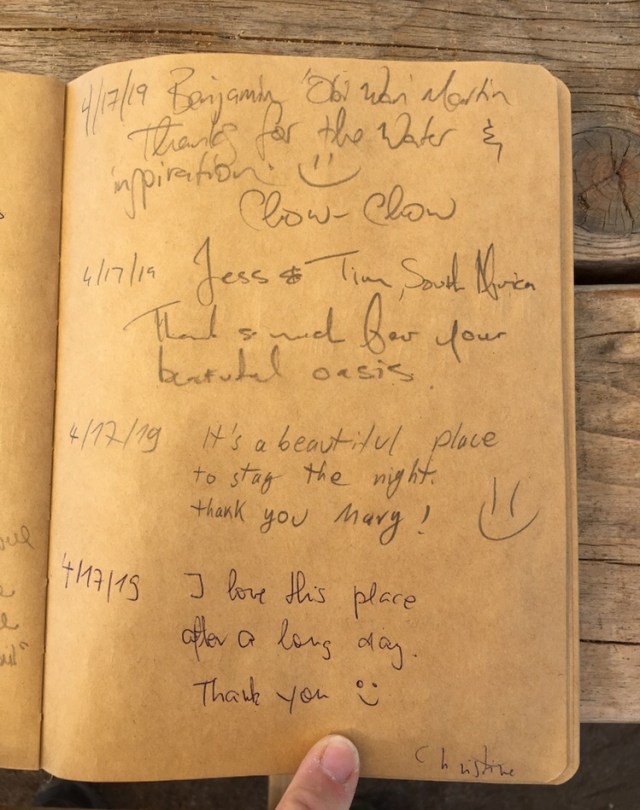 4/17/19 Benjamin 'Obi Wan' Martin
Thanks for the Water &
inspiration.
Chow-Chow
4/17/19 Jess & Tim, South Africa
Thank so much for your
beautiful oasis.
4/17/19 It's a beautiful place
to stay the night.
thank you Mary!
4/17/19 I love this place
after a long day.
Thank you
Christine